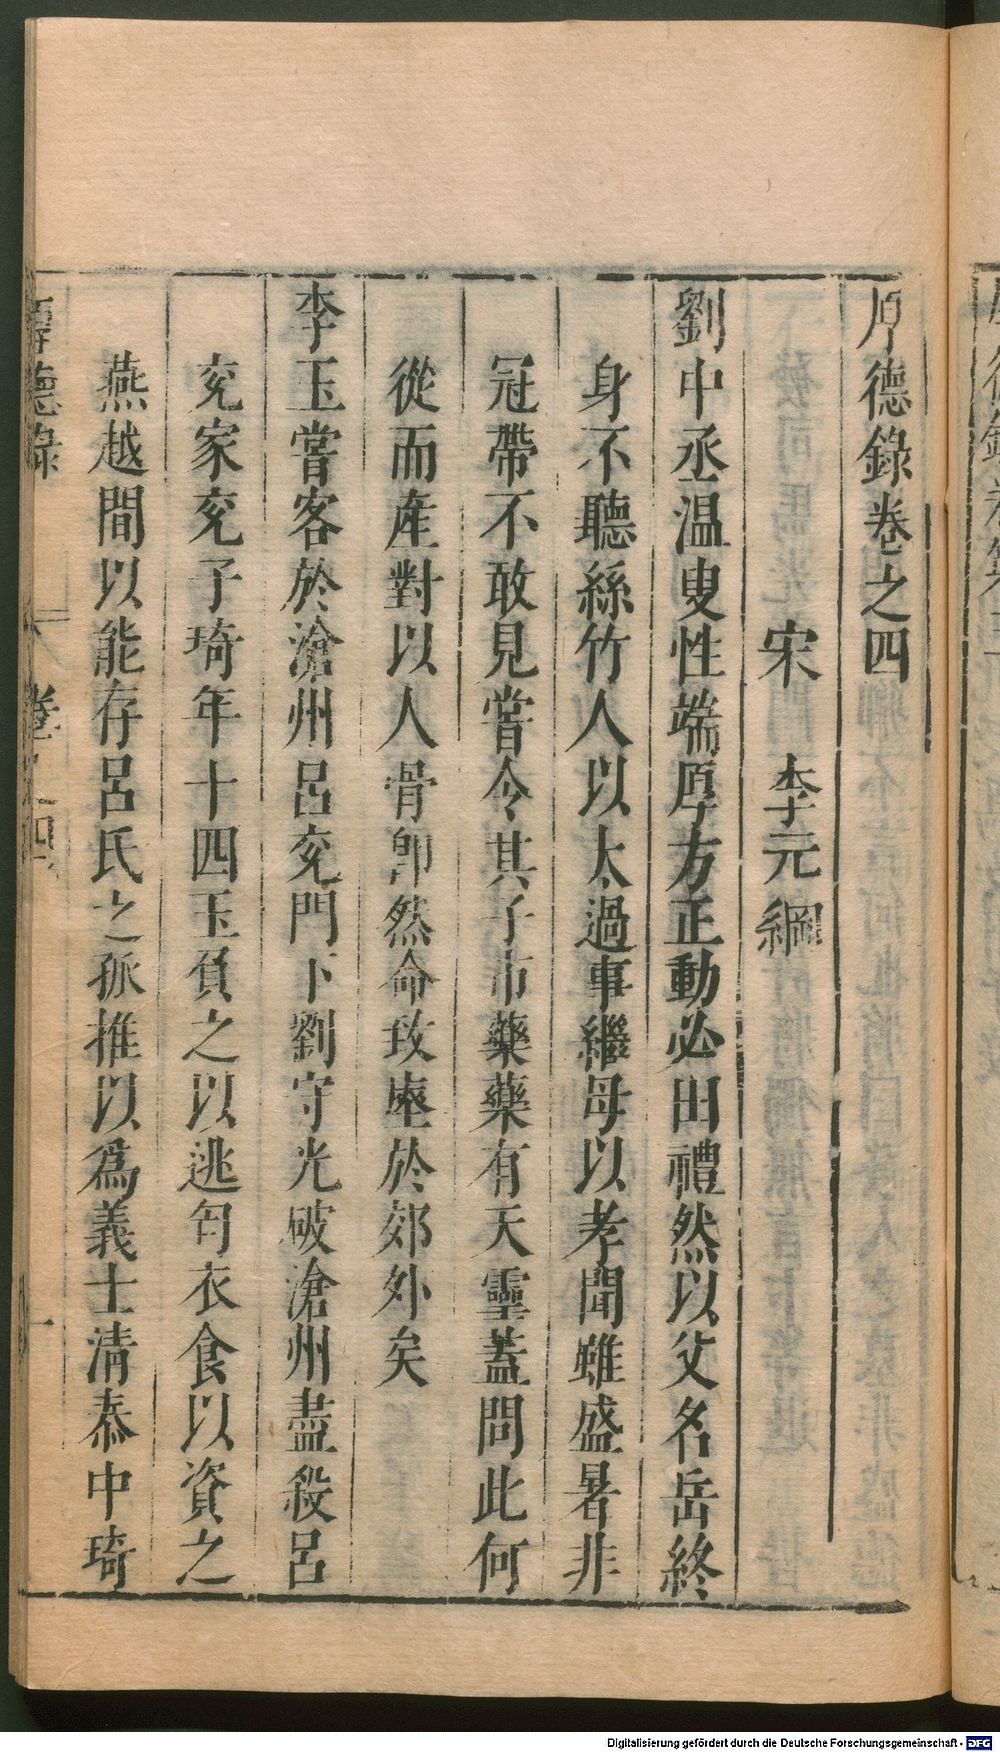 厚德錄卷之四
宋　李元綱
劉中丞温叟性端厚方正動必由禮然以父名岳終
身不聽絲竹人以太過事繼母以孝聞雖盛暑非
冠帶不敢見嘗令其子市藥藥有天靈蓋問此何
從而產對以人骨卽然命致𤸫於郊外矣
李玉嘗客於滄州呂兖門下劉守光破滄州盡殺呂
兖家兖子琦年十四玉負之以逃匄衣食以資之
燕越間以能存呂氏之孤推以爲義士清泰中琦
厚德錄　卷之四　一
Digitalisierung gefördert durch die Deutsche Forschungsgemeinschaft - DFG